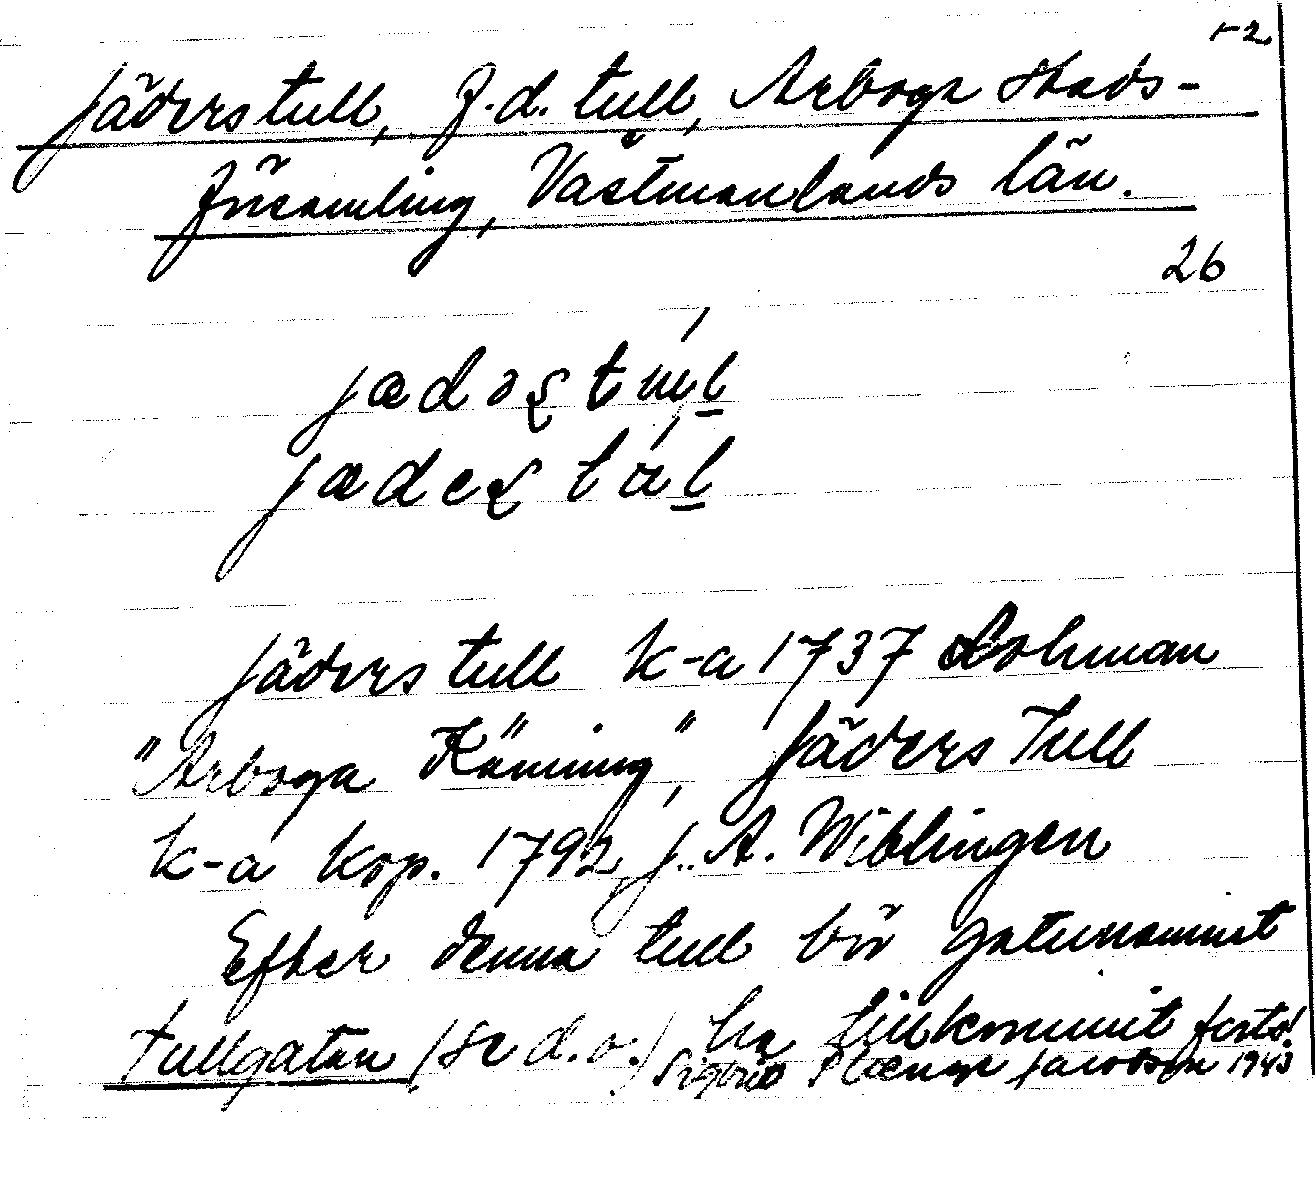 1-2
Jäders tull, f.d. tull, Arboga stads-
församling, Västmanlands län.
26
Jäders tull k-a 1737 Lohman
"Arboga Känning", Jäders Tull
k-a kop. 1792 J. A. Wiblingen
Efter denna tull bör gatunamnet
Tullgatan (se d.o.) ha tillkommit forts!
Sigbrit Plænge Jacobson 1943